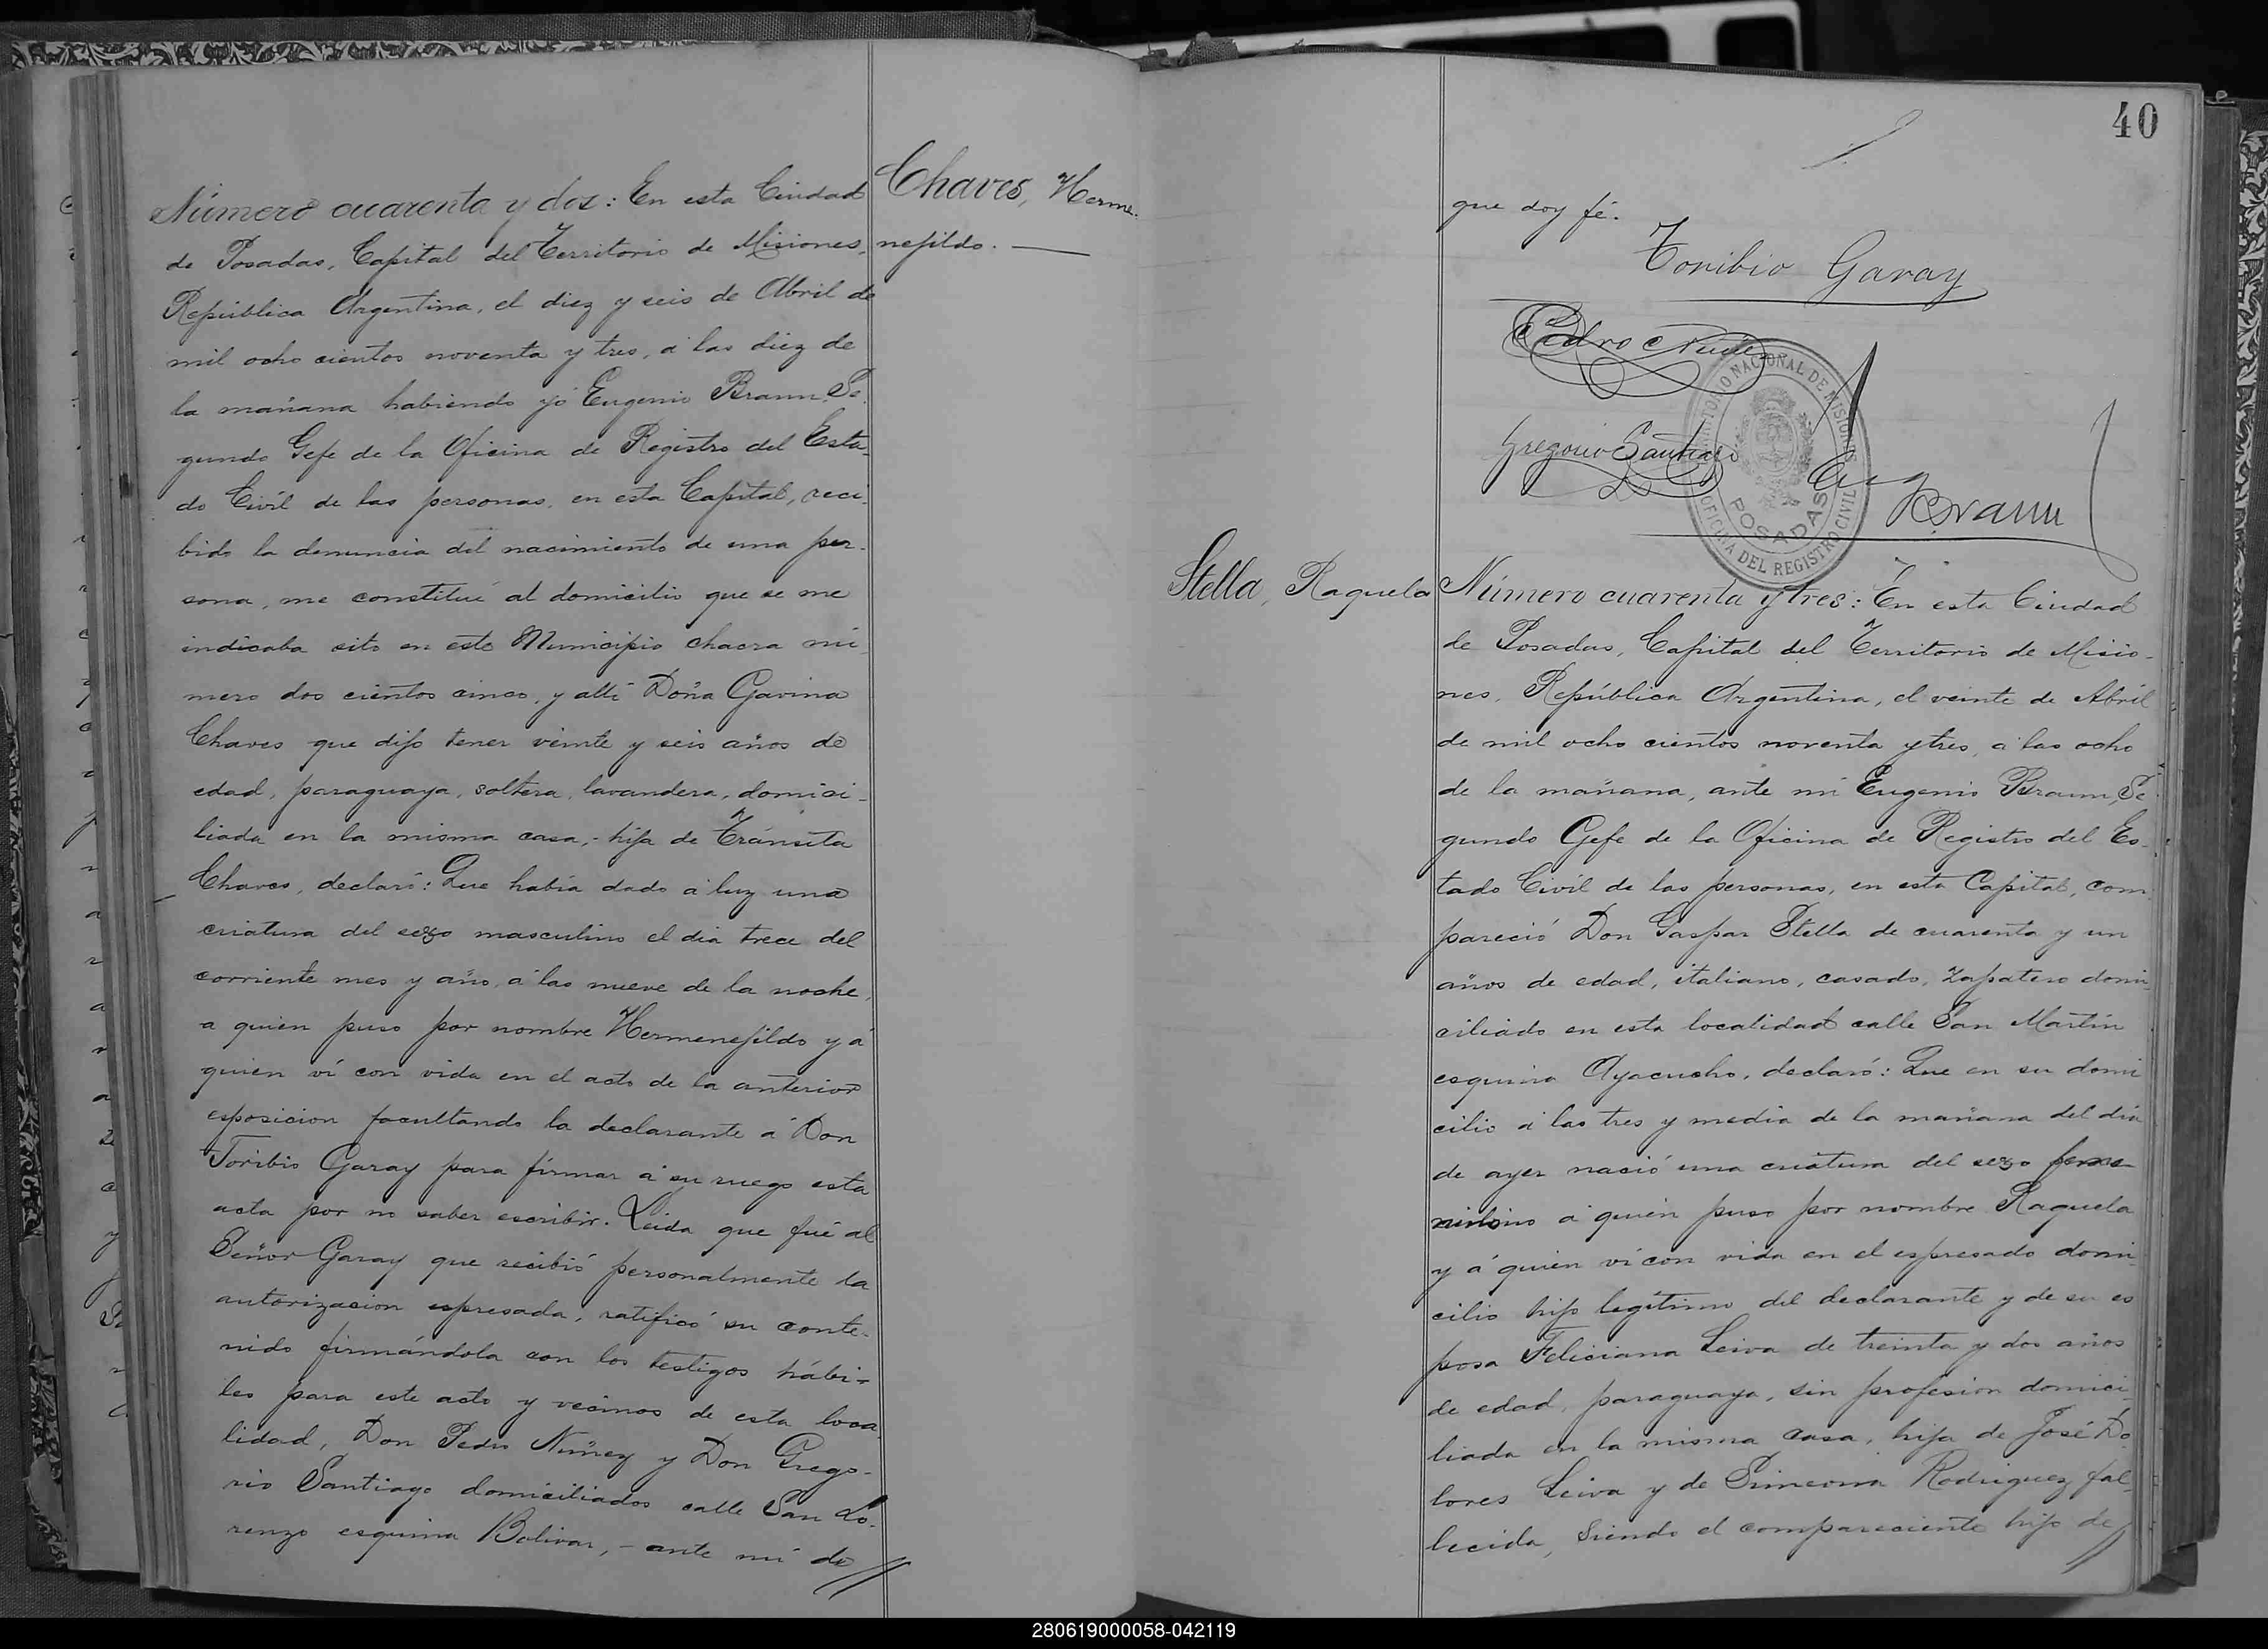 Chaves, Herme-
nejildo. —
Número cuarenta y dos: En esta Ciudad
de Posadas, Capital del Territorio de Misiones,
República Argentina, el diez y seis de Abril de
mil ocho cientos noventa y tres, á las diez de
la mañana habiendo yó Eugenio Braun, Se-
gundo Gefe de la Oficina de Registro del Esta-
do Civíl de las personas, en esta Capital, reci-
bido la denuncia del nacimiento de una per-
sona, me constitué al domicilio que se me
indicaba sito en este Municipio chacra nú-
mero dos cientos cinco, y allí Doña Gavina
Chaves que dijo tener veinte y seis años de
edad, paraguaya, soltera, lavandera, domici-
liada en la misma casa,- hija de Tránsita
Chaves, declaró: Que había dado á luz una
criatura del sexo masculino el dia trece del
corriente mes y año, á las nueve de la noche,
a quien puso por nombre Hermenejildo y á
quien ví con vida en el acto de la anterior
esposicion facultando la declarante á Don
Toribio Garay para firmar á su ruego esta
acta por no saber escribir. Leida que fué al
Señor Garay que recibió personalmente la
autorizacion espresada, ratificó su conte-
nido firmándola con los testigos hábi-
les para este acto y vecinos de esta loca-
lidad, Don Pedro Nuñez y Don Grego-
rio Santiago domiciliados calle San Lo-
renzo esquina Bolivar, - ante mí de //
40
que doy fé.
Toribio Garay
Pedro Nuñez
Gregorio Santiago
Eug
Braun
TERRITORIO NACIONAL DE MISIONES
POSADAS
OFICINA DEL REGISTRO CIVIL
Stella, Raquela
Número cuarenta y tres: En esta Ciudad
de Posadas, Capital del Territorio de Misio-
nes, República Argentina, el veinte de Abril
de mil ocho cientos noventa y tres, á las ocho
de la mañana, ante mí Eugenio Braun, Se-
gundo Gefe de la Oficina de Registro del Es-
tado Civíl de las personas, en esta Capital, com-
pareció Don Gaspar Stella de cuarenta y un
años de edad, italiano, casado, zapatero domi-
ciliado en esta localidad calle San Martin
esquina Ayacucho, declaró: Que en su domi
cilio á las tres y media de la mañana del día
de ayer nació una criatura del sexo feme-
á quien puso por nombre Raquela
y á quien ví con vida en el espresado domi-
cilio hijo legítimo del declarante y de su es
posa Feliciana Leiva de treinta y dos años
de edad, paraguaya, sin profesion domici-
liada en la misma casa, hija de José Do-
lores Leiva y de Simeona Rodriguez fal-
lecida, siendo el compareciente hijo de //
280619000058-042119